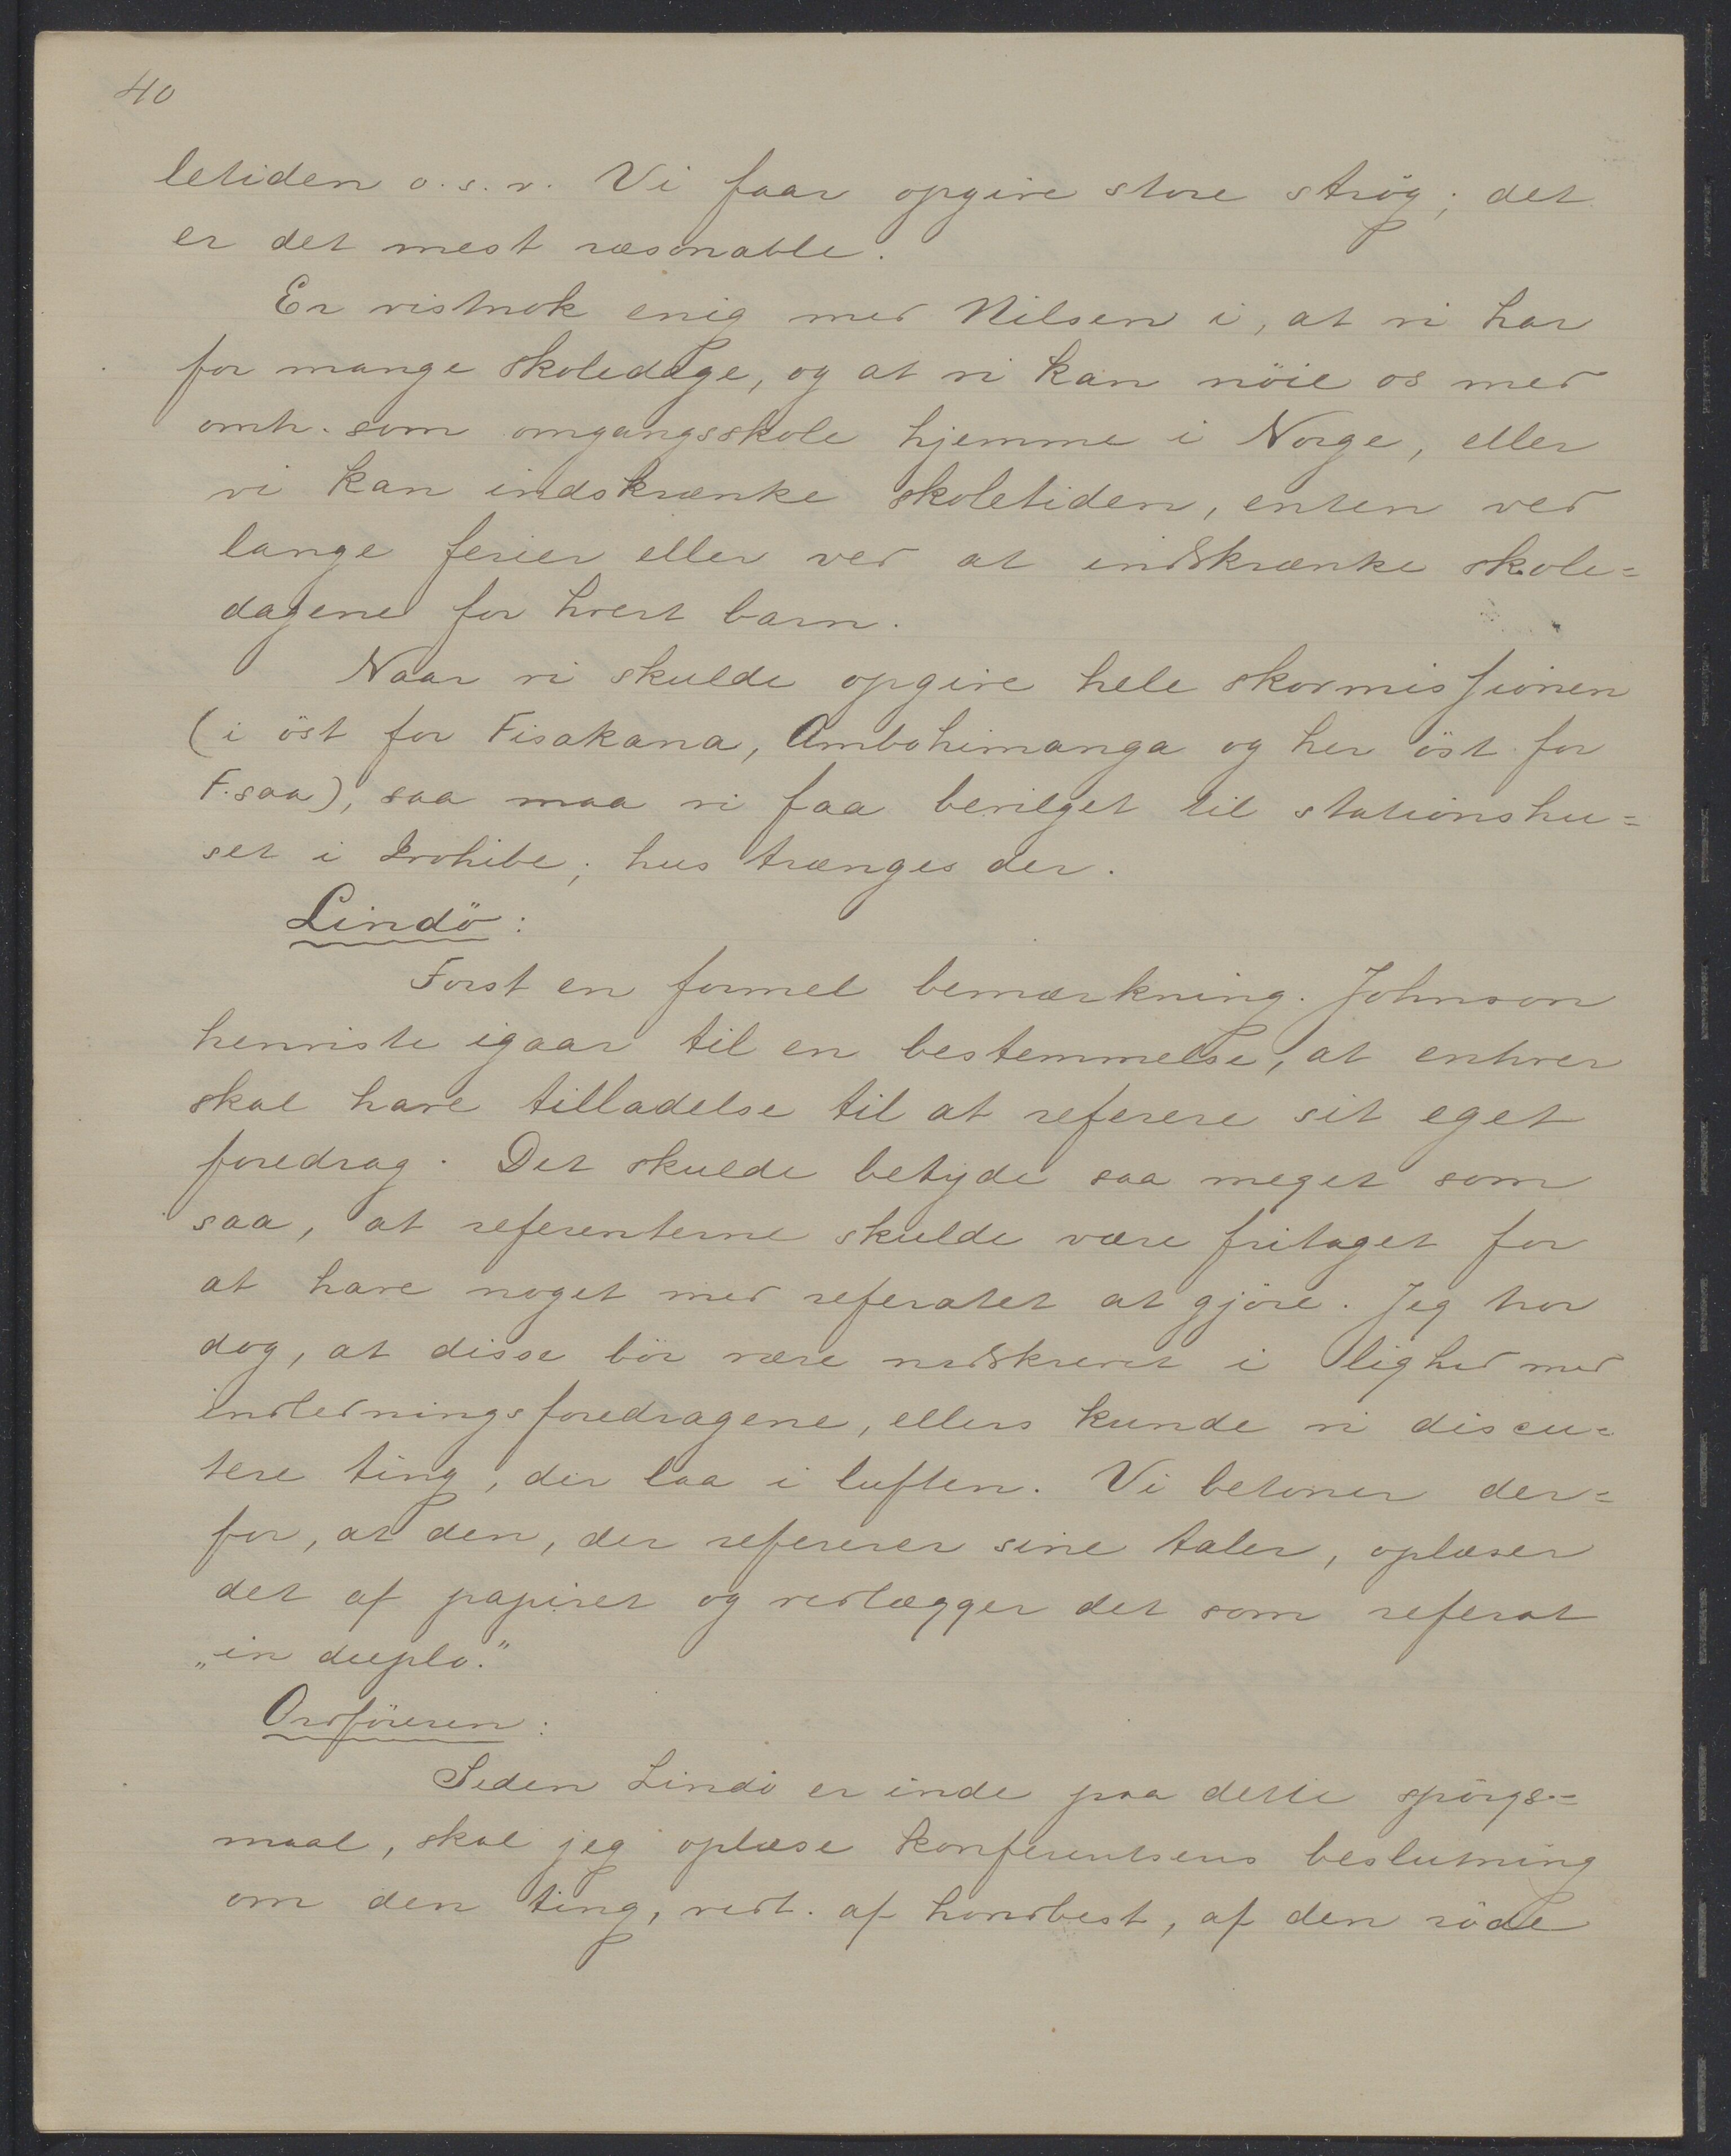 40
letiden o. s. v. Vi faar opgive store strøg; det
er det mest ræsonable.
Er vistnok enig med Nilsen i, at vi har
for mange skoledage, og at vi kan nöie os med
omtr. som omgangsskole hjemme i Norge, eller
vi kan indskrænke skoletiden, enten ved
lange ferier eller ved at indskrænke skole=
dagene for hvert barn.
Naar vi skulde opgive hele skovmissionen
(i öst for Fisakana, Ambohimanga og her öst for
F.saa), saa maa vi faa bevilget til stationshu=
set i Ivohibe; hus trænges der.
Lindö:
Först en formel bemærkning. Johnson
henviste igaar til en bestemmelse, at enhver
skal have tilladelse til at referere sit eget
foredrag. Det skulde betyde saa meget som
saa, at referenterne skulde være fritaget for
at have noget med referatet at gjöre. Jeg tror
dog, at disse bör være nedskrevet i lighed med
indledningsforedragene, ellers kunde vi discu=
tere ting, der laa i luften. Vi betoner der=
for, at den, der refererer sine taler, oplæser
det af papiret og vedlægger det som referat
„in duplo."
Ordföreren:
Siden Lindö er inde paa dette spörgs=
maal, skal jeg oplæse konferentsens beslutning
om den ting, vedt. af hovedbest, af den röde